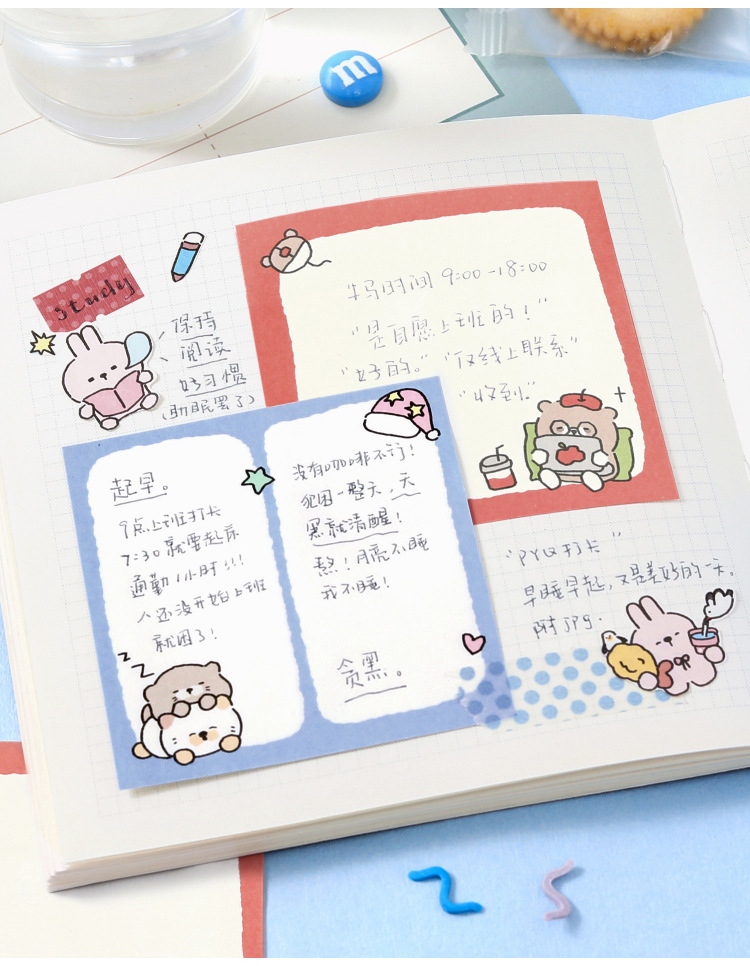 m
study
保持
阅读
好习惯
(助眠罢了)
牛马时间 9:00-18:00
"是自愿上班的!"
"好的。" "仅线上联系"
"收到"
起早。
9点上班打卡
7:30就要起床
通勤1小时!!!
人还没开始上班
就困了!
没有咖啡不行!
犯困一整天,天
黑就清醒!
熬!月亮不睡
我不睡!
贪黑。
"PYQ打卡"
早睡早起,又是美好的一天。
附JPG.
z z z